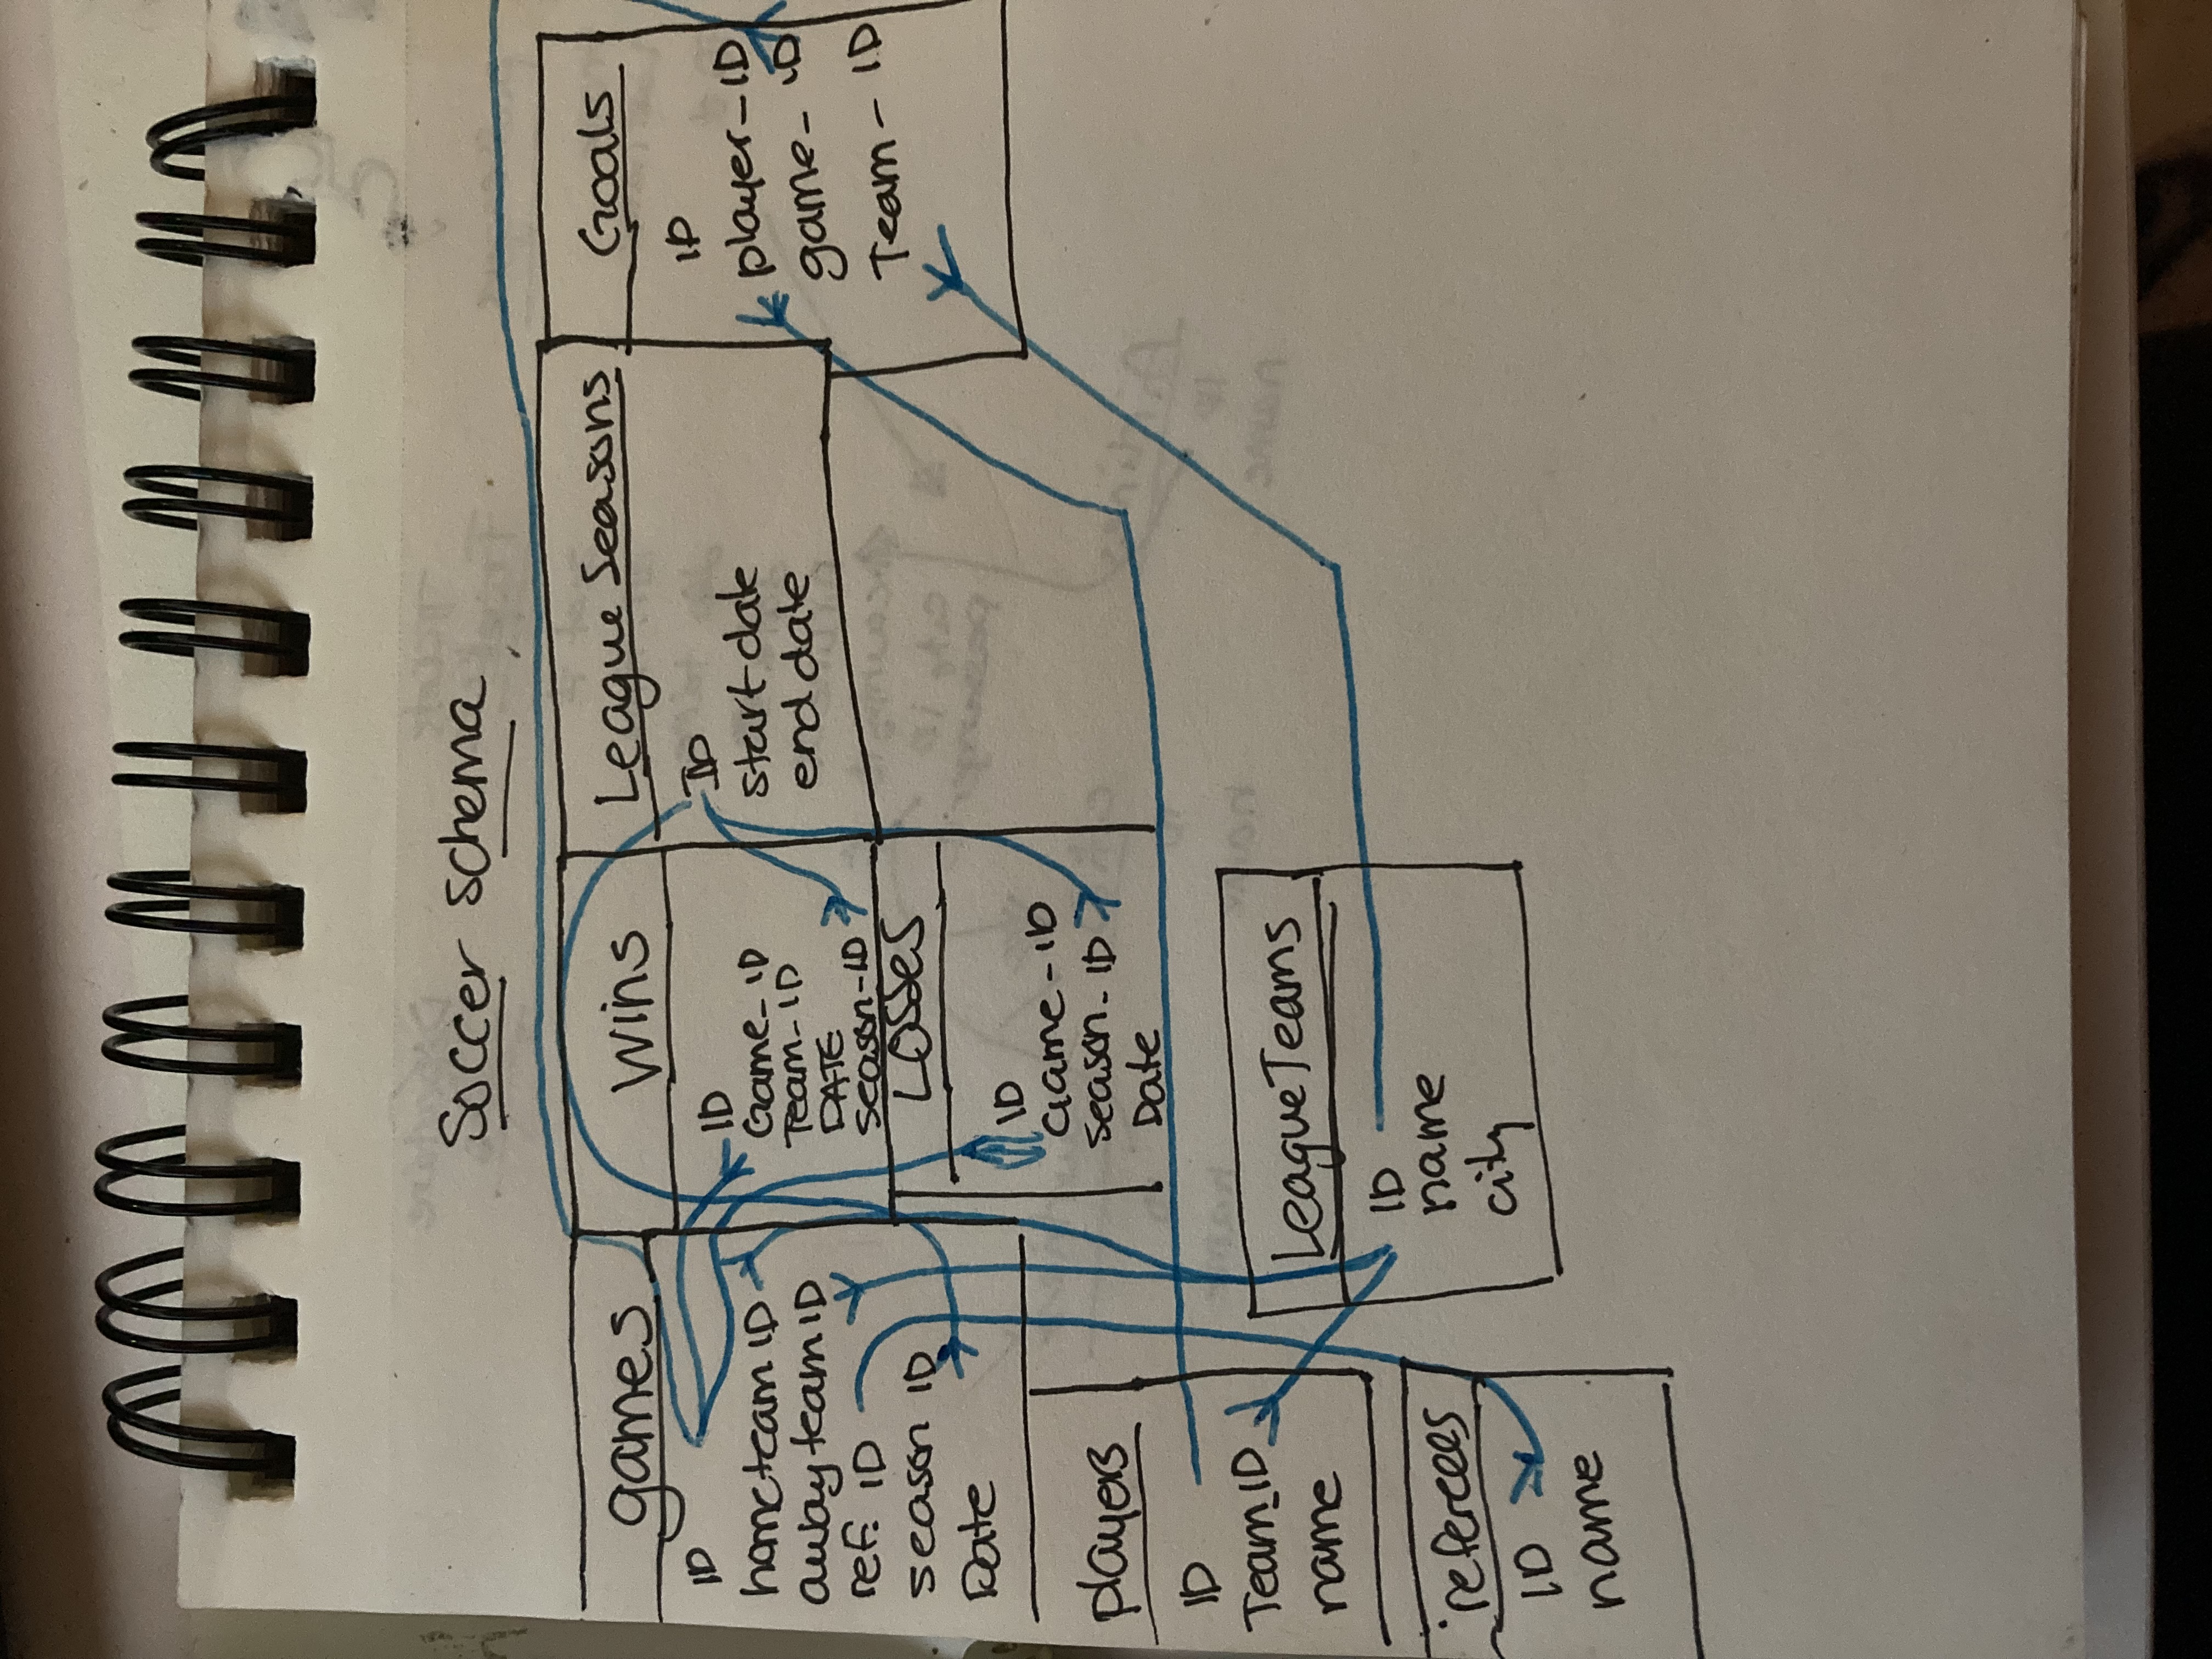 Soccer schema
games
ID
hometeam ID
away team ID
ref. ID
season ID
Date
Wins
ID
Game_ID
Team_ID
DATE
season_ID
Losses
ID
Game_ID
season_ID
Date
League Seasons
ID
start date
end date
Goals
ID
player_ID
game_ID
Team_ID
players
ID
Team_ID
name
League Teams
ID
name
city
referees
ID
name